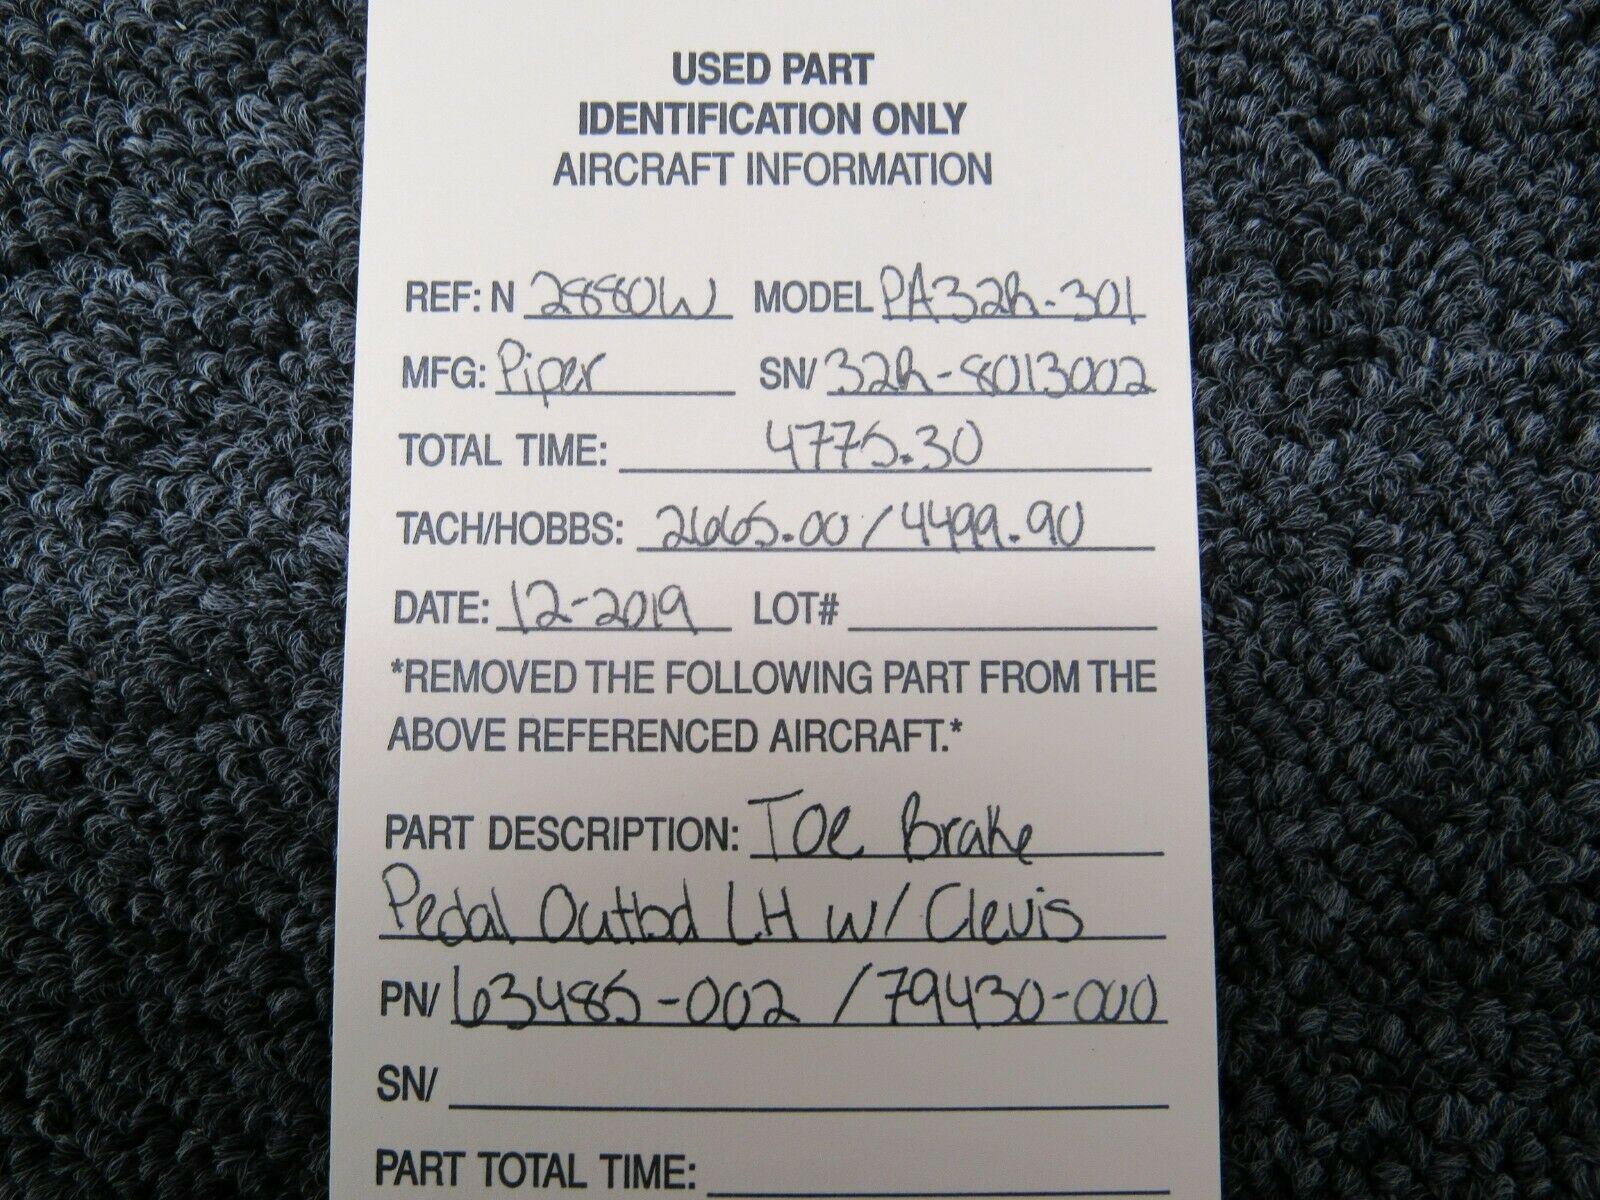 USED PART
IDENTIFICATION ONLY
AIRCRAFT INFORMATION
REF: N 2880W MODEL PA32R-301
MFG: Piper SN/ 32R-8013002
TOTAL TIME: 4775.30
TACH/HOBBS: 2665.00/4499.90
DATE: 12-2019 LOT#
*REMOVED THE FOLLOWING PART FROM THE
ABOVE REFERENCED AIRCRAFT.*
PART DESCRIPTION: TOE Brake
Pedal Outbd LH w/ Clevis
PN/ 63485-002 /79430-000
SN/
PART TOTAL TIME: